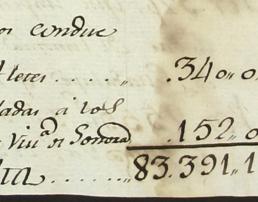 os conduc
fletes ..... „ .34 „ o
ladas á los
Viu.ᵃ de Sonora .152 „ o
..... „ 83.391 „ 1